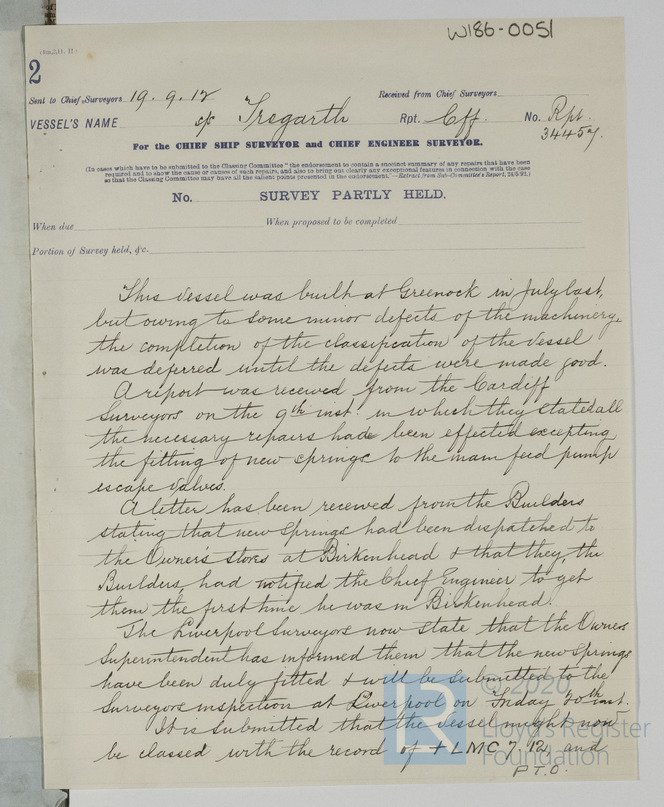 W186-0051
2
Sent to Chief Surveyors 19.9.12 Received from Chief Surveyors
VESSEL'S NAME Tregarth Rpt. Cff. No. Rpt. 34457.
For the CHIEF SHIP SURVEYOR and CHIEF ENGINEER SURVEYOR.
(In cases which have to be submitted to the Classing Committee "the endorsement to contain a succinct summary of any repairs that have been
required and to show the cause or causes of such repairs, and also to bring out clearly any exceptional features in connection with the case
so that the Classing Committee may have all the salient points presented in the endorsement."—Extract from Sub-Committee's Report,
No. SURVEY PARTLY HELD.
When due When proposed to be completed
Portion of Survey held, &c.
This Vessel was built at Greenock in July last,
but owing to some minor defects of the machinery
the completion of the classification of the Vessel
was deferred until the defects were made good.
A report was received from the Cardiff
Surveyors on the 9th inst. in which they stated all
the necessary repairs had been effected excepting
the fitting of new springs to the main feed pump
escape valves.
A letter has been received from the Builders
stating that new springs had been dispatched to
the Owner's stores at Birkenhead & that they, the
Builders, had notified the Chief Engineer to get
them the first time he was in Birkenhead.
The Liverpool Surveyors now state that the Owners
Superintendent has informed them that the new springs
have been duly fitted & will be submitted to the
Surveyors inspection at Liverpool on Friday 20th inst.
It is submitted that the Vessel might now
be classed with the record of + LMC 7.12, and
P.T.O.
© 2020
Lloyd's Register
Foundation
LR